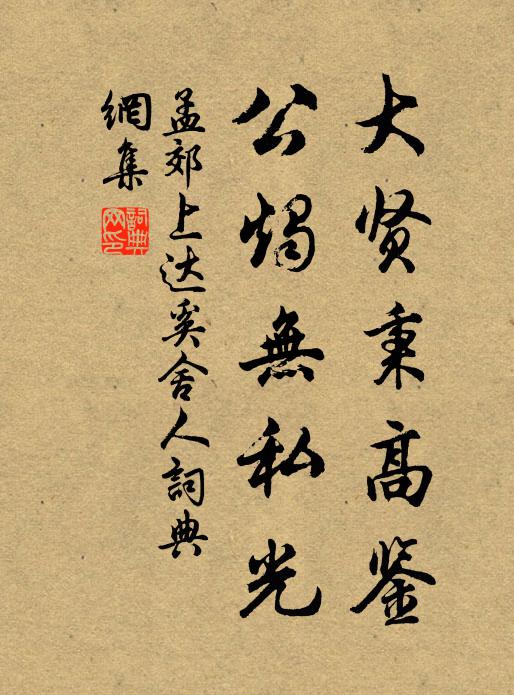 大贤秉高鉴
公烛無私光
孟郊上达奚舍人詞典
網集
詞典
网印